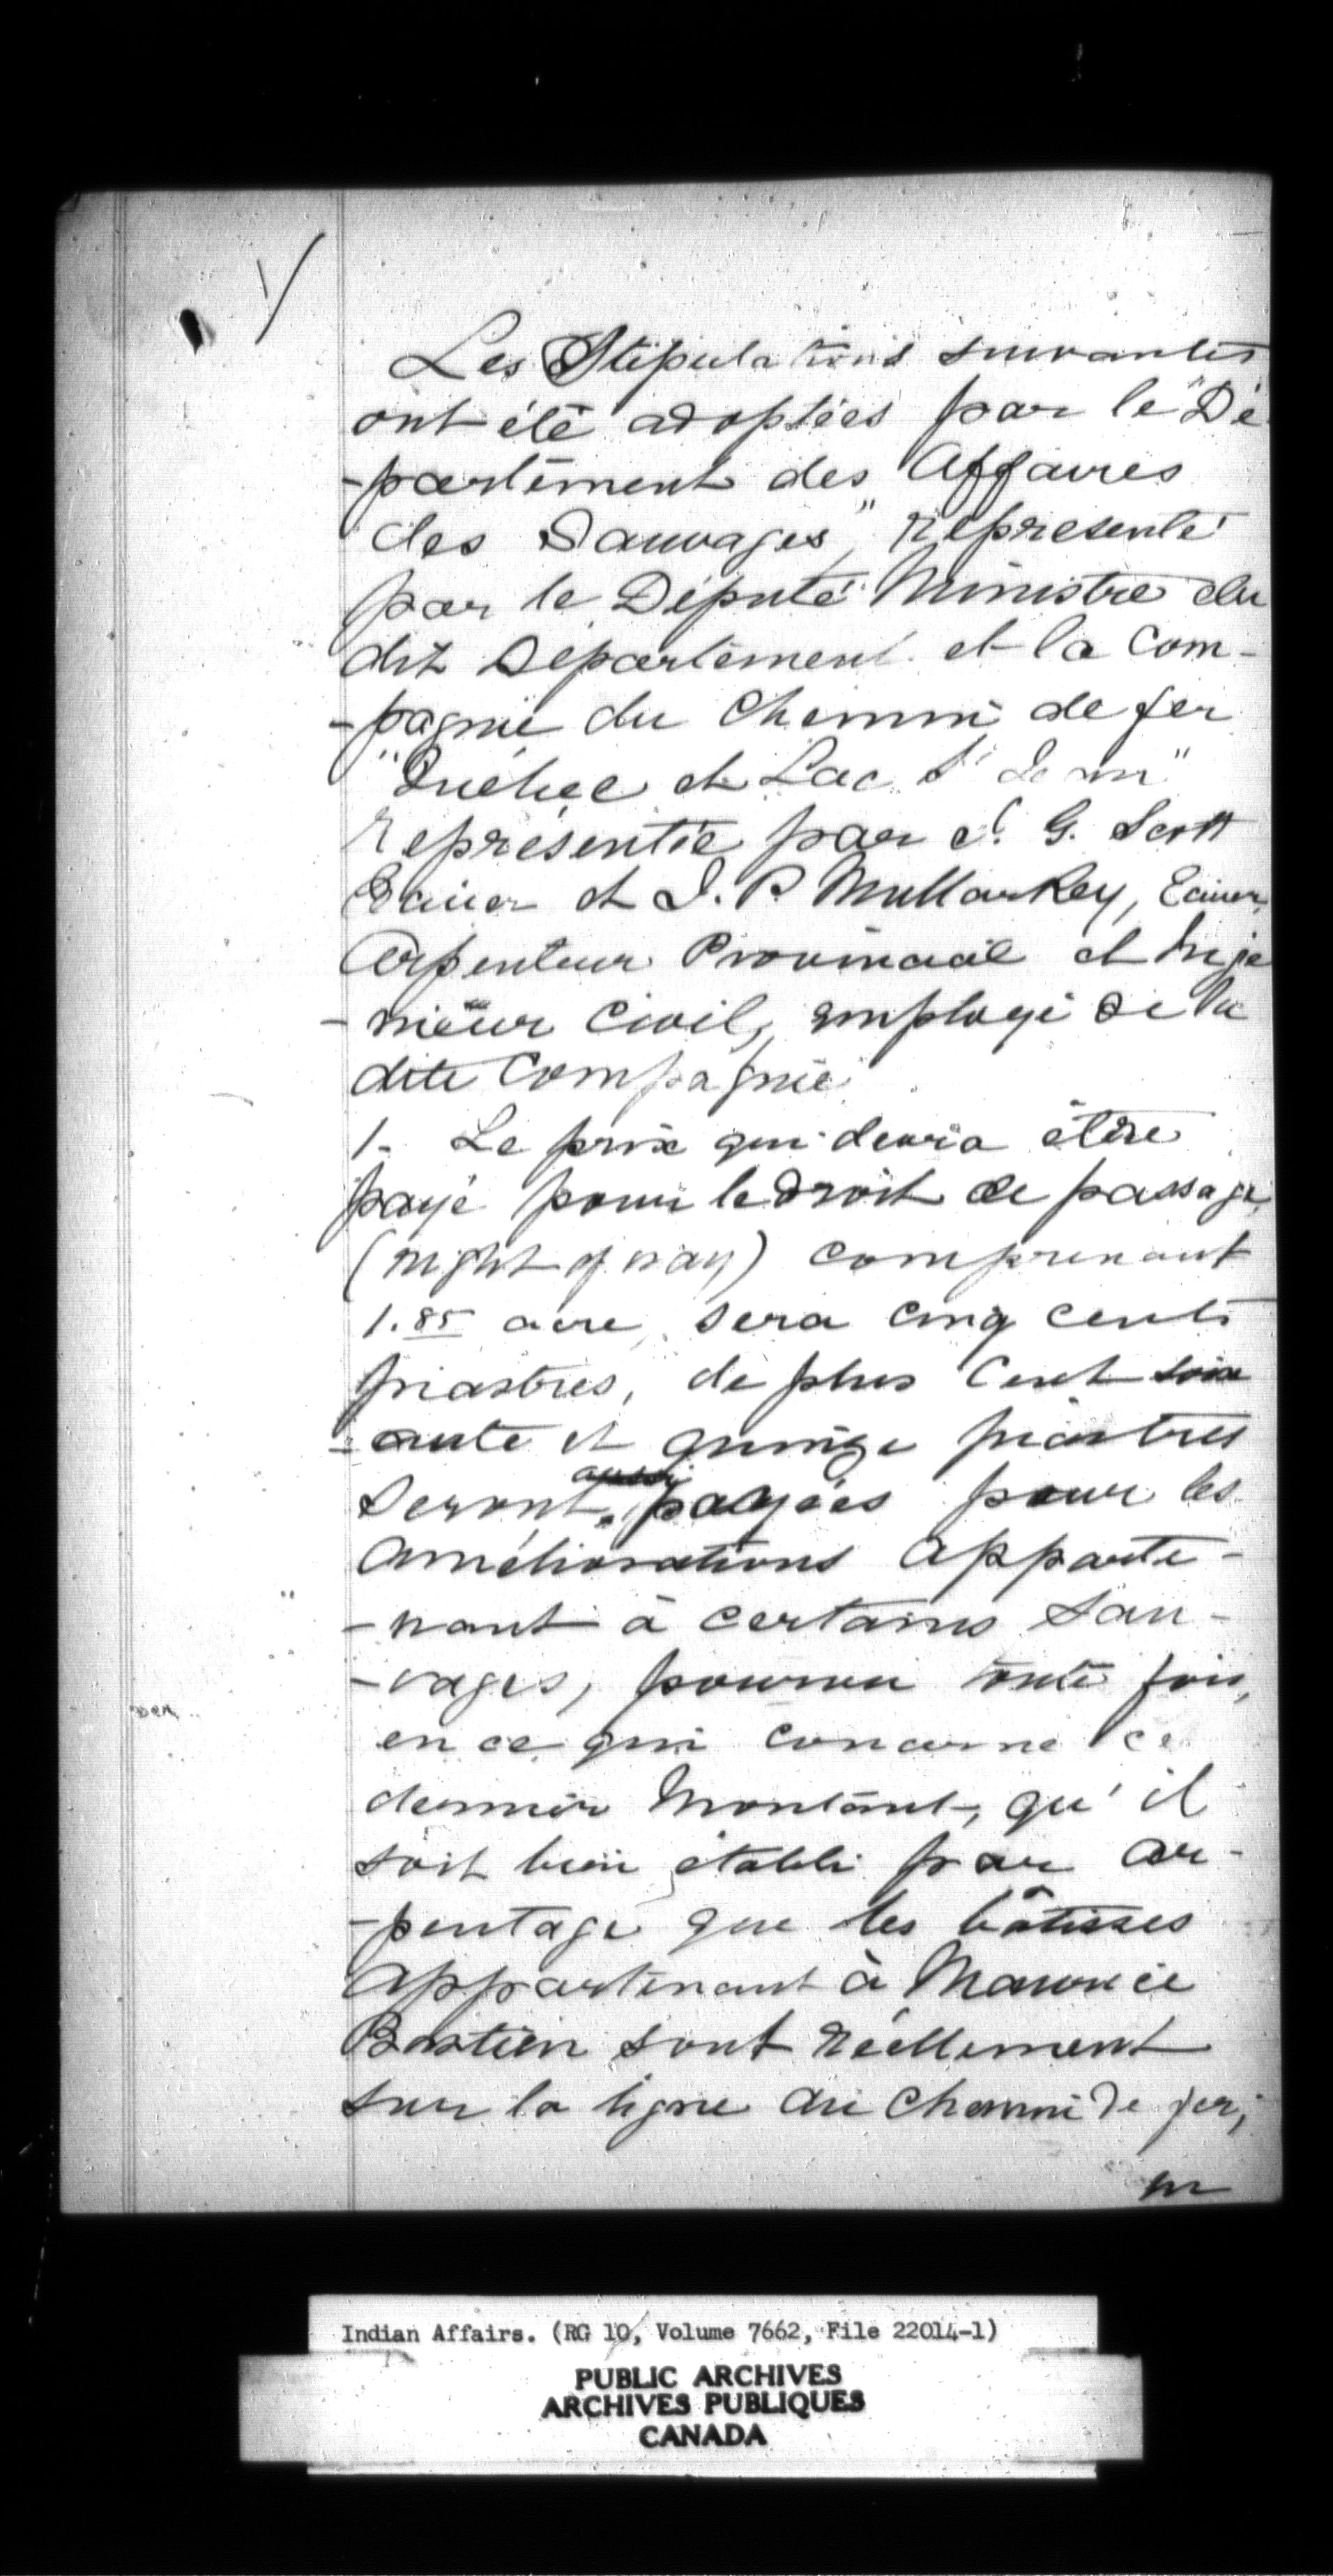 Les Stipulations suivantes
ont été adoptées par le "Dé
-partement des Affaires
des Sauvages", représenté
par le Député Ministre du
dit Département et la Com-
-pagnie du Chemin de fer
"Québec et Lac St Jean"
représentée par J. G. Scott
Ecuier et J. P. Mullarkey, Ecuier,
Arpenteur Provincial et Ingé
-nieur Civil, employé de la
dite Compagnie
1- Le prix qui devra être
payé pour le droit de passage,
(right of way) comprenant
1.85 acre, sera cinq cents
piastres, de plus Cent soix
-ante et quinze piastres
seront aussi payées pour les
améliorations apparte-
-nant à certains Sau-
-vages, pourvu toute fois,
en ce qui concerne ce
dernier Montant, qu'il
soit bien établi par ar-
-pentage que les bâtisses
appartenant à Maurice
Bastien sont réellement
sur la ligne du chemin de fer,
Indian Affairs. (RG 10, Volume 7662, File 22014-1)
PUBLIC ARCHIVES
ARCHIVES PUBLIQUES
CANADA